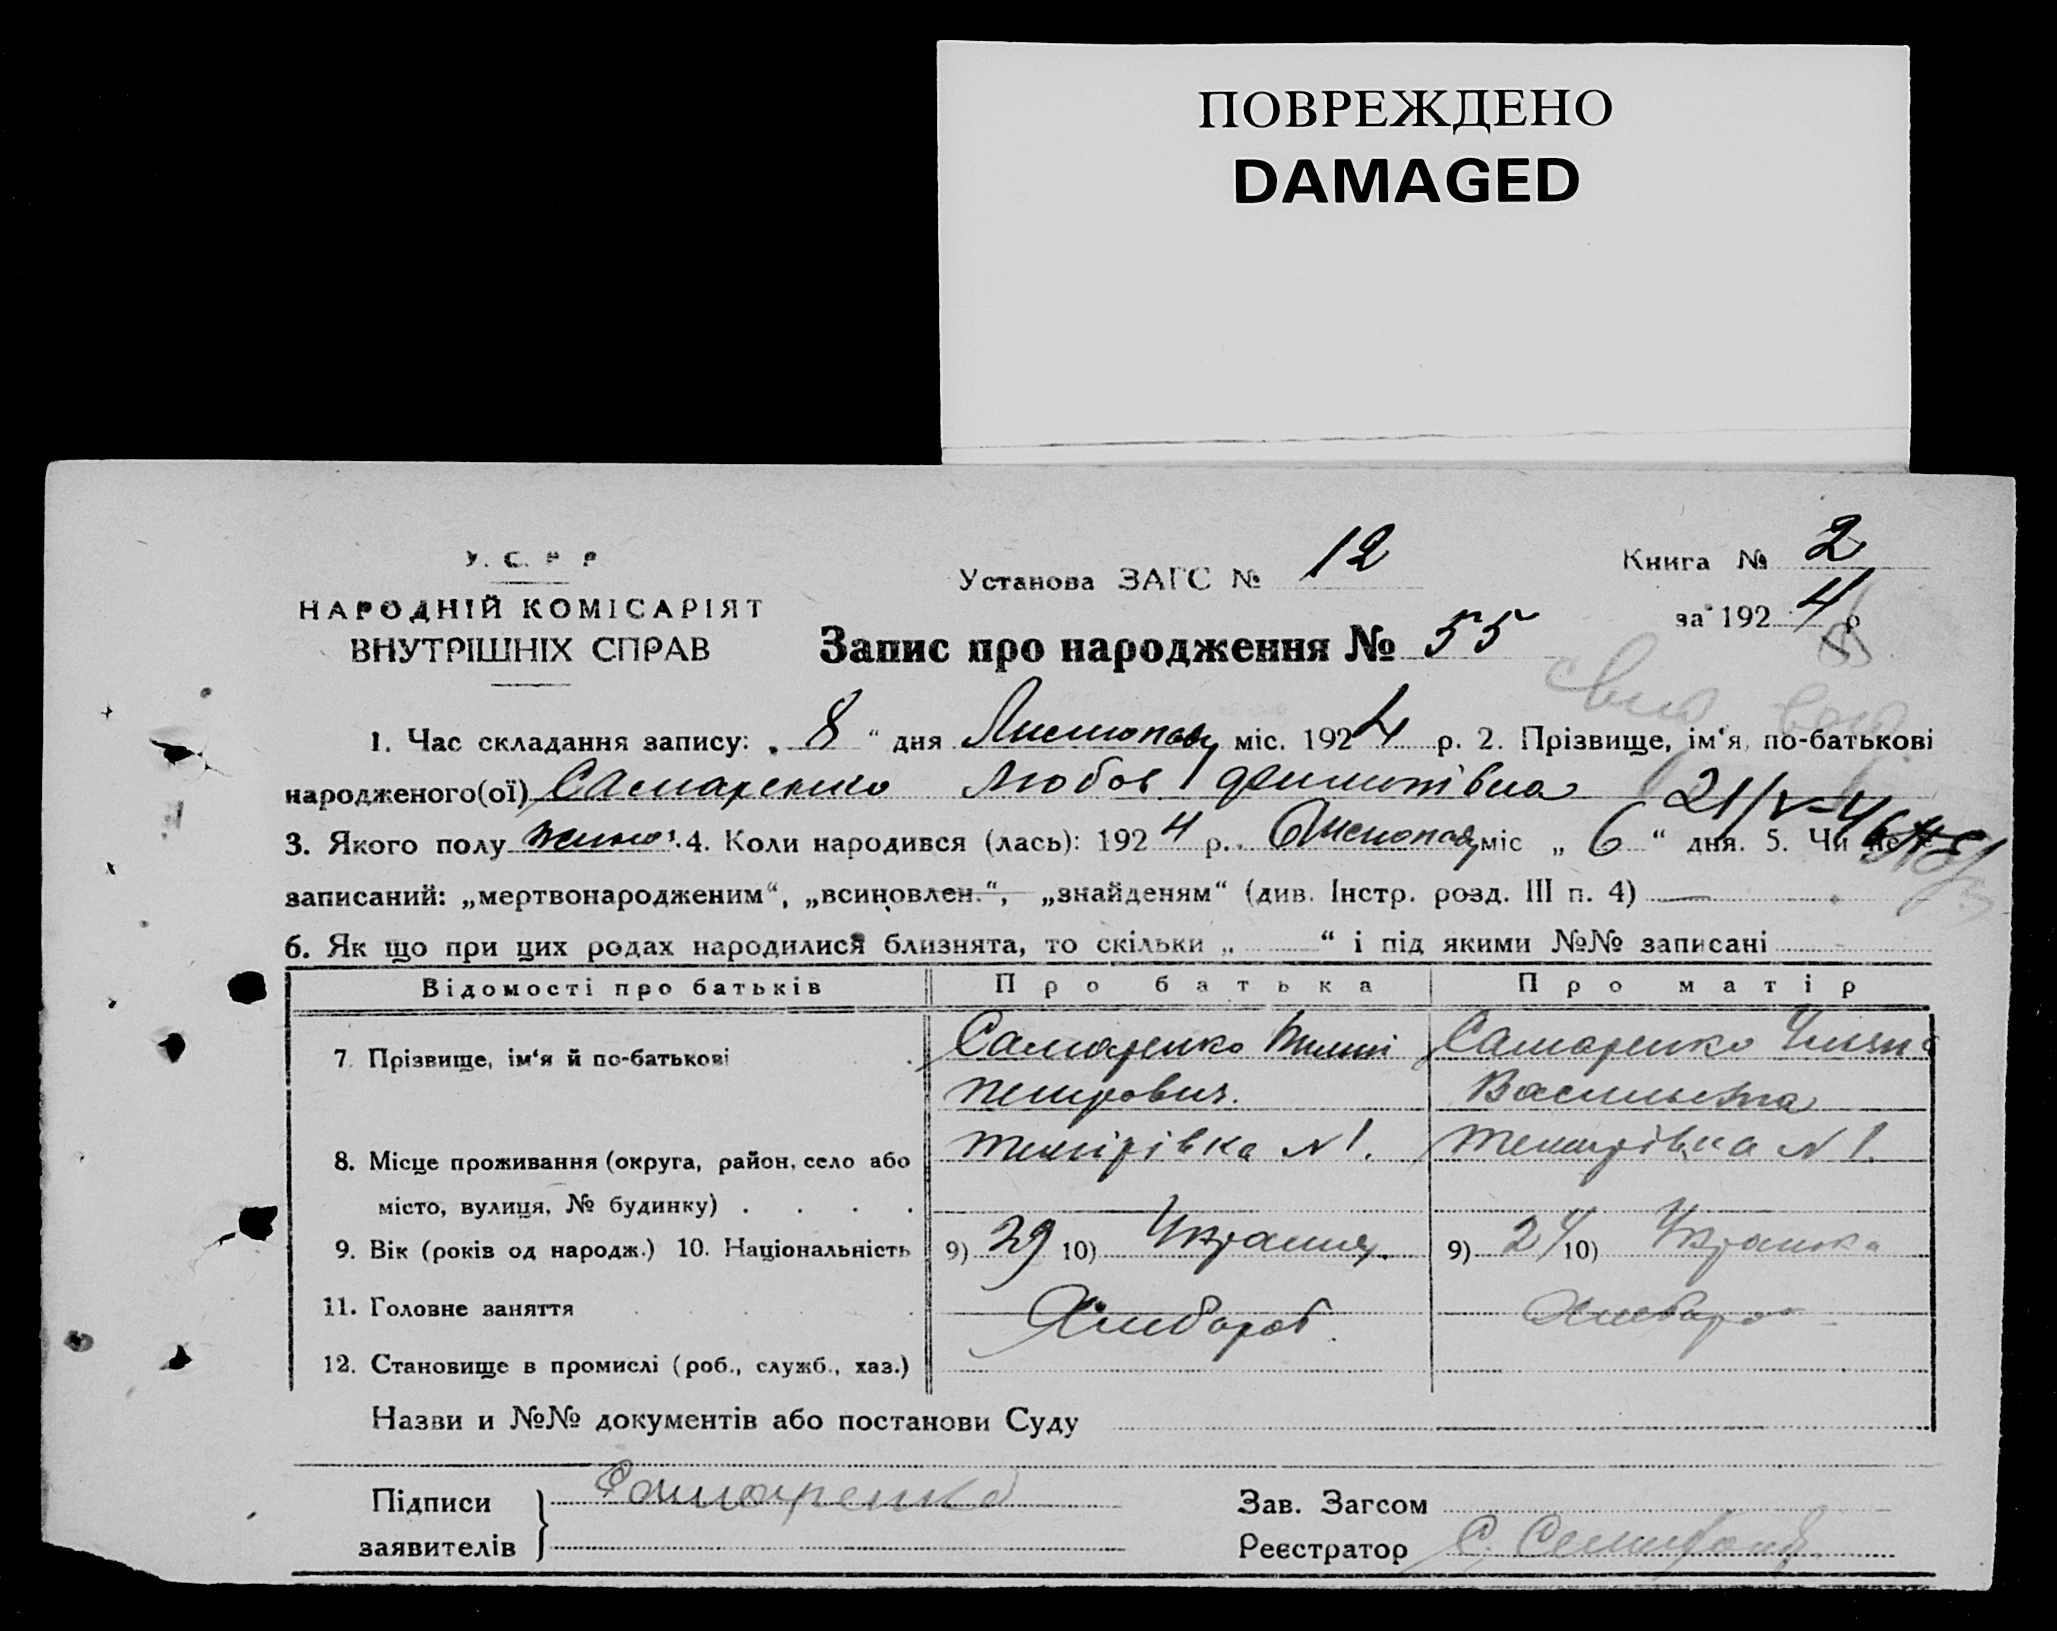 ПОВРЕЖДЕНО
DAMAGED
У. С. Р Р
НАРОДНІЙ КОМІСАРІЯТ
ВНУТРІШНІХ СПРАВ
Установа ЗАГС № 12
Книга № 2
за 192 4 р
Запис про народження № 55
1. Час складання запису: „ 8 “ дня Листопаду міс. 192 4 р. 2. Прізвище, ім‘я, по-батькові
народженого(ої) Самаренко Любов 21/V-46
3. Якого полу 4. Коли народився (лась): 192 4 р. Листопад міс „ 6 “ дня. 5. Чи не є
записаний: „мертвонародженим“, „всиновлен.“, „знайденям“ (див. Інстр. розд. III п. 4)
6. Як що при цих родах народилися близнята, то скільки „ “ і під якими №№ записані
Відомості про батьків Про батька Про матір
7. Прізвище, ім‘я й по-батькові Самаренко Самаренко
Петрович. Васильевна
8. Місце проживання (округа, район, село або Темирівка N 1. Темирівка N 1.
місто, вулиця, № будинку)
9. Вік (років од народж.) 10. Національність 9) 29 10) Украинец. 9) 24 10) Украинка
11. Головне заняття Хлібороб Хлібороб
12. Становище в промислі (роб., служб., хаз.)
Назви и №№ документів або постанови Суду
Підписи Самаренко Зав. Загсом
заявителів Реєстратор С.